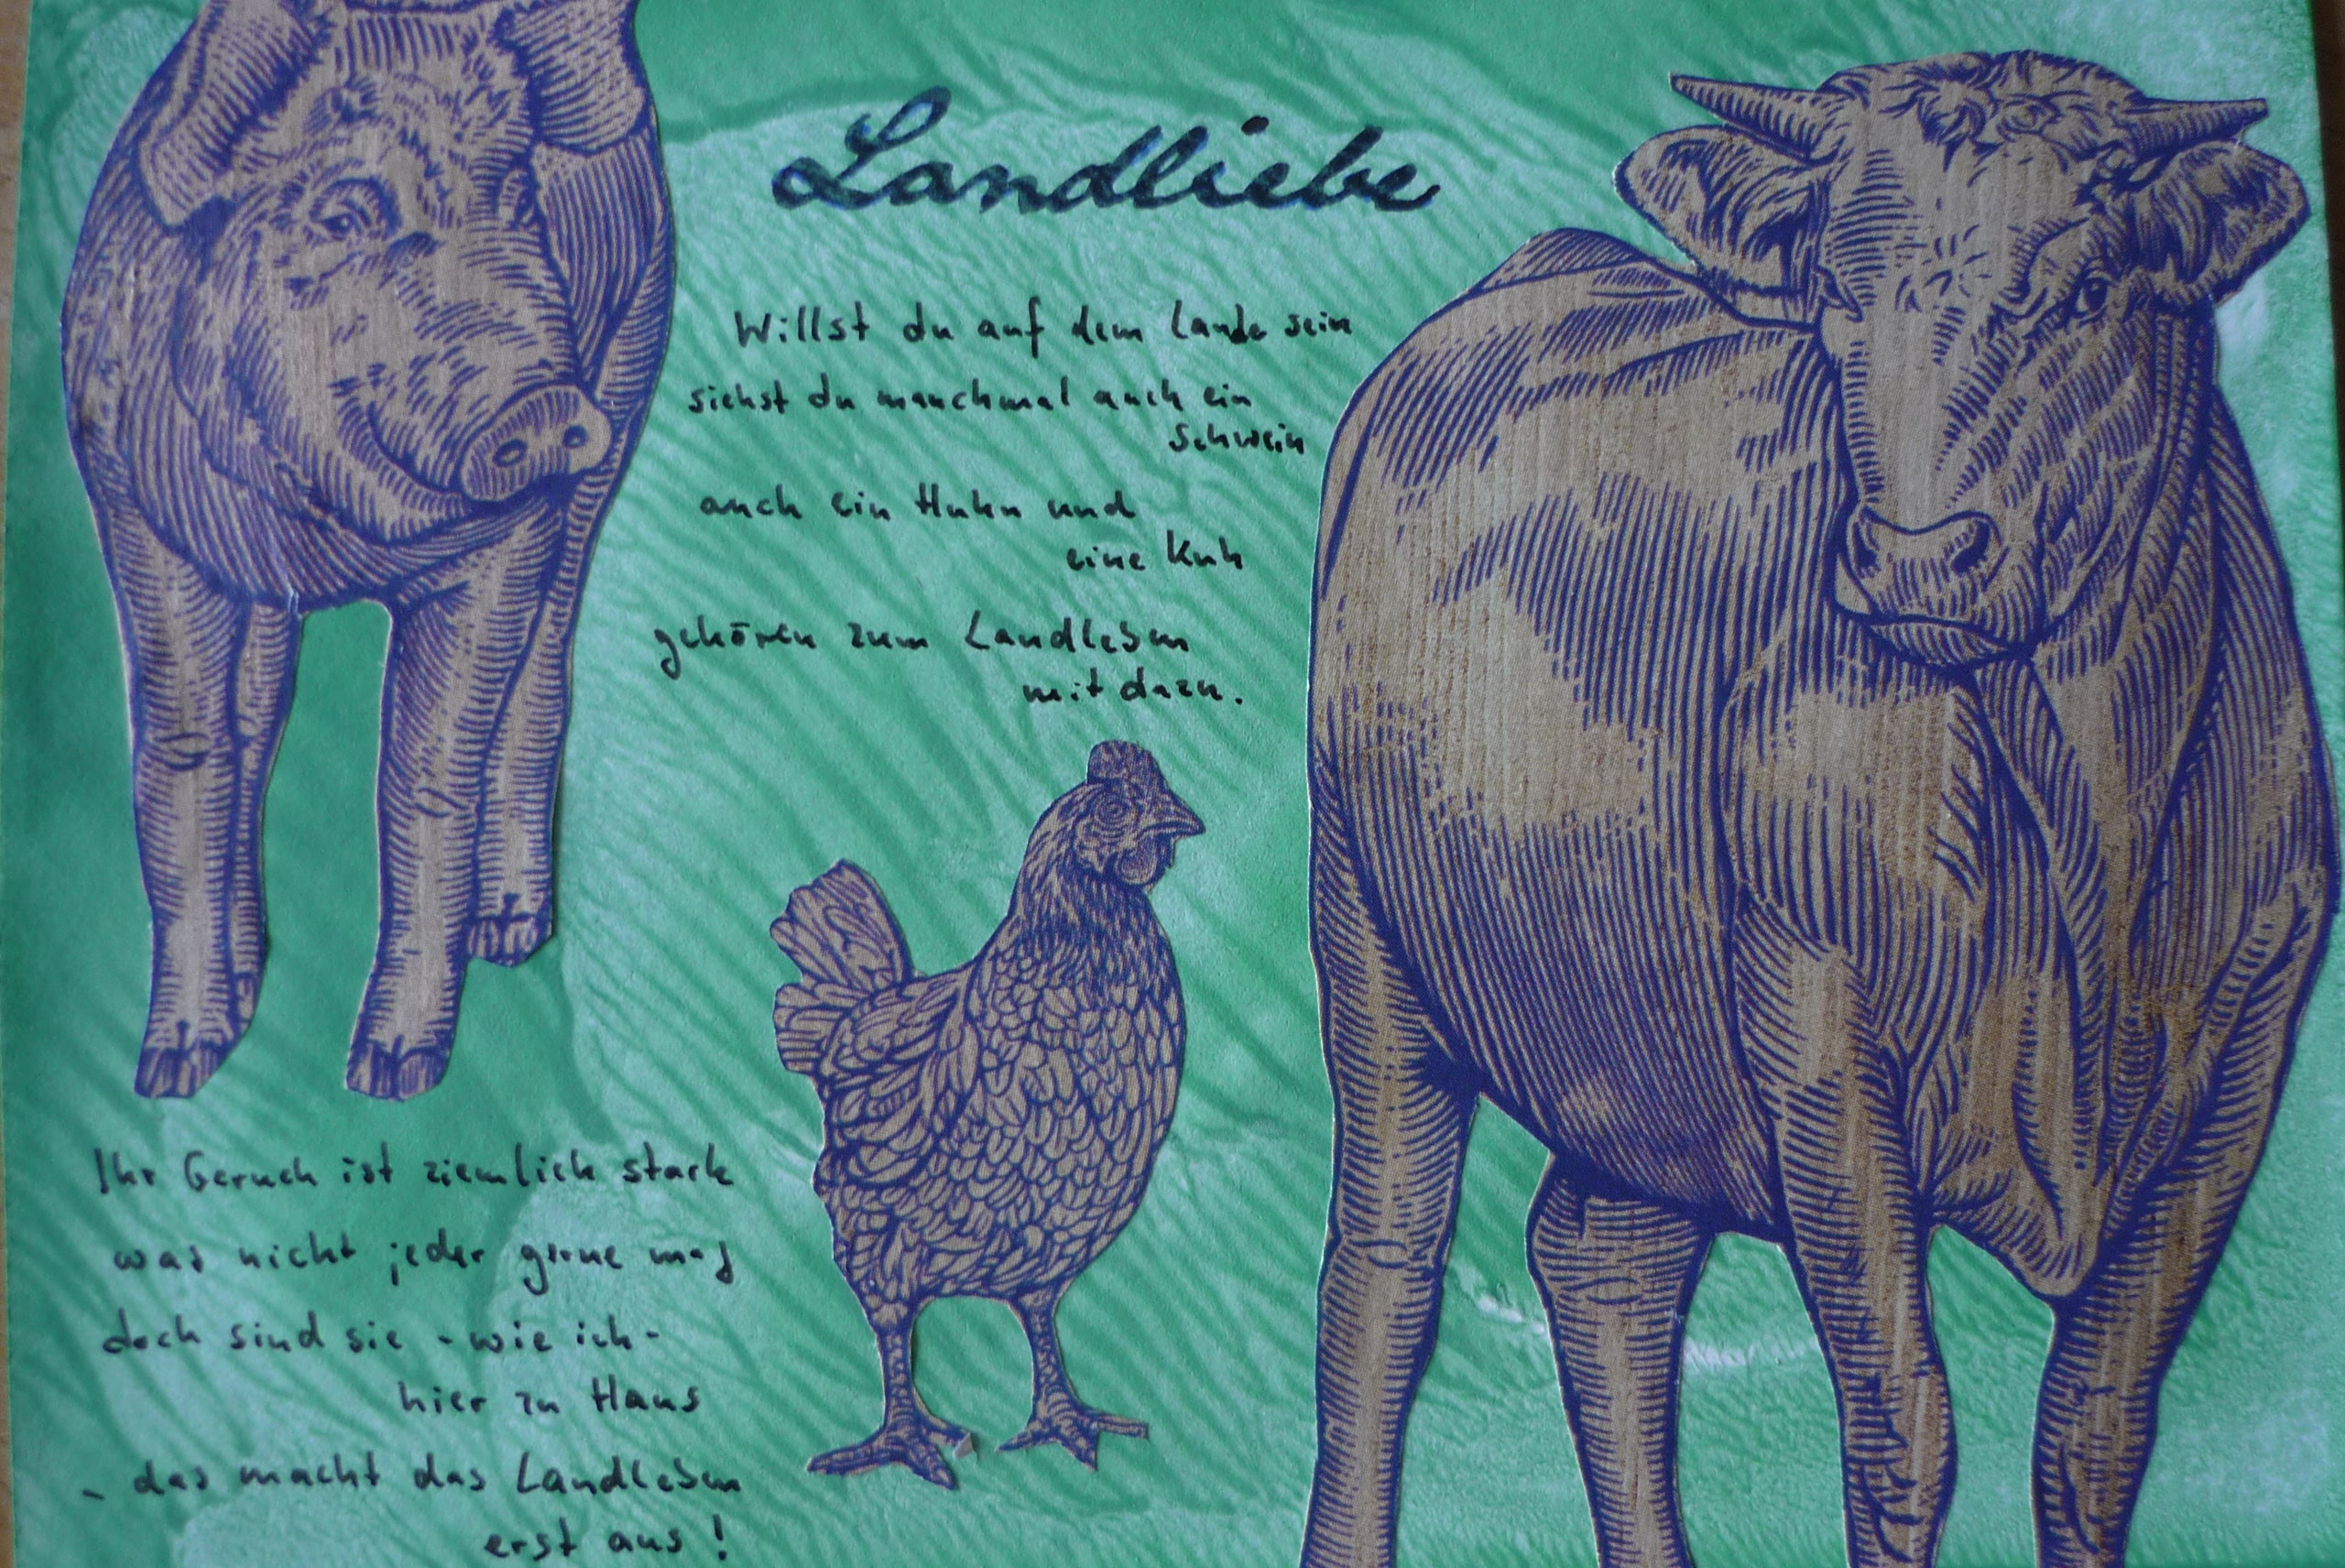 Landliebe
Willst du auf dem Lande sein
siehst du manchmal auch ein
Schwein
auch ein Huhn und
eine Kuh
gehören zum Landleben
mit dazu.
Ihr Geruch ist ziemlich stark
was nicht jeder gerne mag
doch sind sie - wie ich -
hier zu Haus
- das macht das Landleben
erst aus!